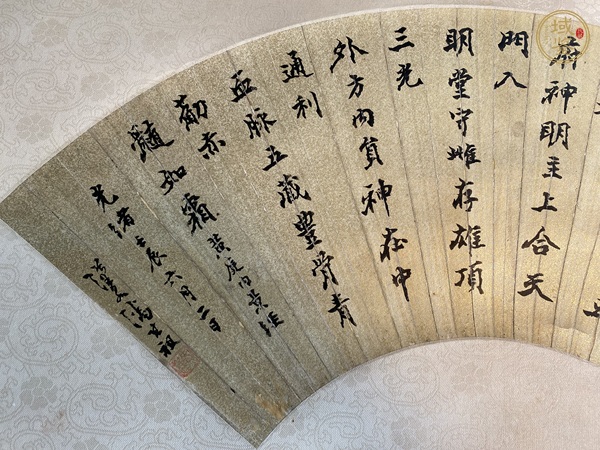 府神明主上合天
門入
明堂守雌存雄項
三光
外方內負神在中
通利
血脈五藏豐骨青
勒赤
髓如霜 黃庭內黃經
光緒壬辰六月二日